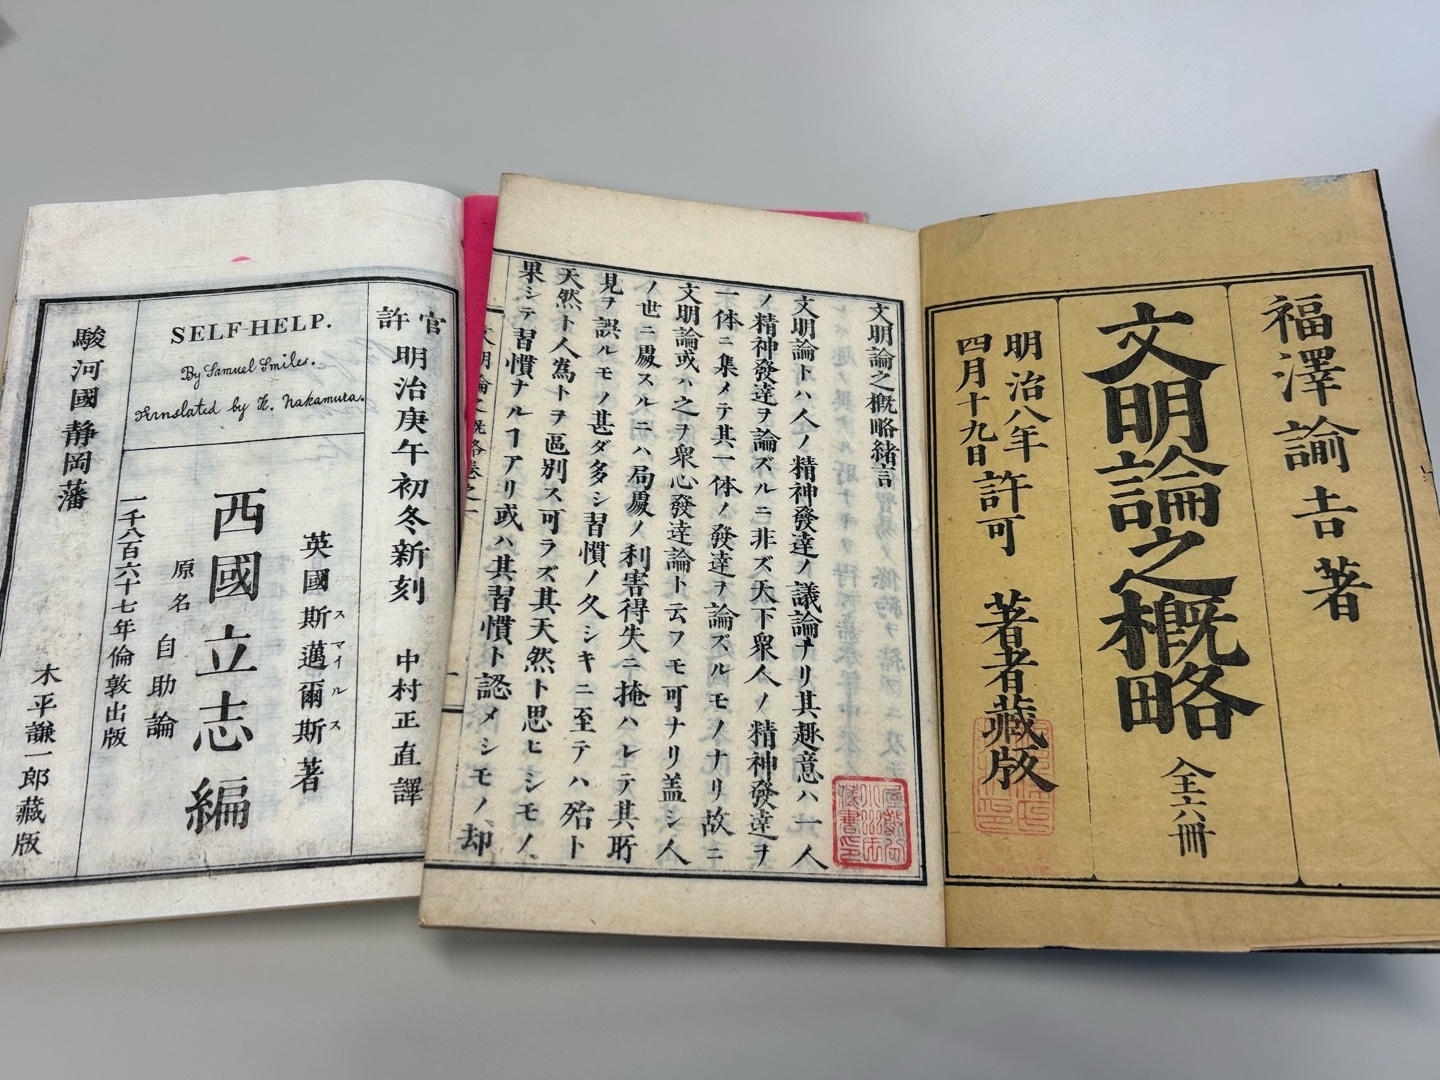 福澤諭吉著
文明論之概略 全六冊
明治八年
四月十九日 許可
著者藏版
文明論之概略緒言
文明論トハ人ノ精神發達ノ議論ナリ其趣意ハ一人
ノ精神發達ヲ論ズルニ非ズ天下衆人ノ精神發達ヲ
一体ニ集メテ其一体ノ發達ヲ論ズルモノナリ故ニ
文明論或ハ之ヲ衆心發達論ト云フモ可ナリ蓋シ人
ノ世ニ處スルニハ局處ノ利害得失ニ掩ハレテ其所
見ヲ誤ルモノ甚ダ多シ習慣ノ久シキニ至テハ殆ト
天然ト人為トヲ區別ス可ラズ其天然ト思ヒシモノ、
果シテ習慣ナルヿアリ或ハ其習慣ト認メシモノ、却
文明論之概略卷之一
一
官許
明治庚午初冬新刻 中村正直譯
SELF-HELP.
By Samuel Smiles.
Translated by K. Nakamura.
英國斯邁爾斯著
スマイルス
西國立志編
原名 自助論
一千八百六十七年倫敦出版
駿河國靜岡藩 木平謙一郎藏版